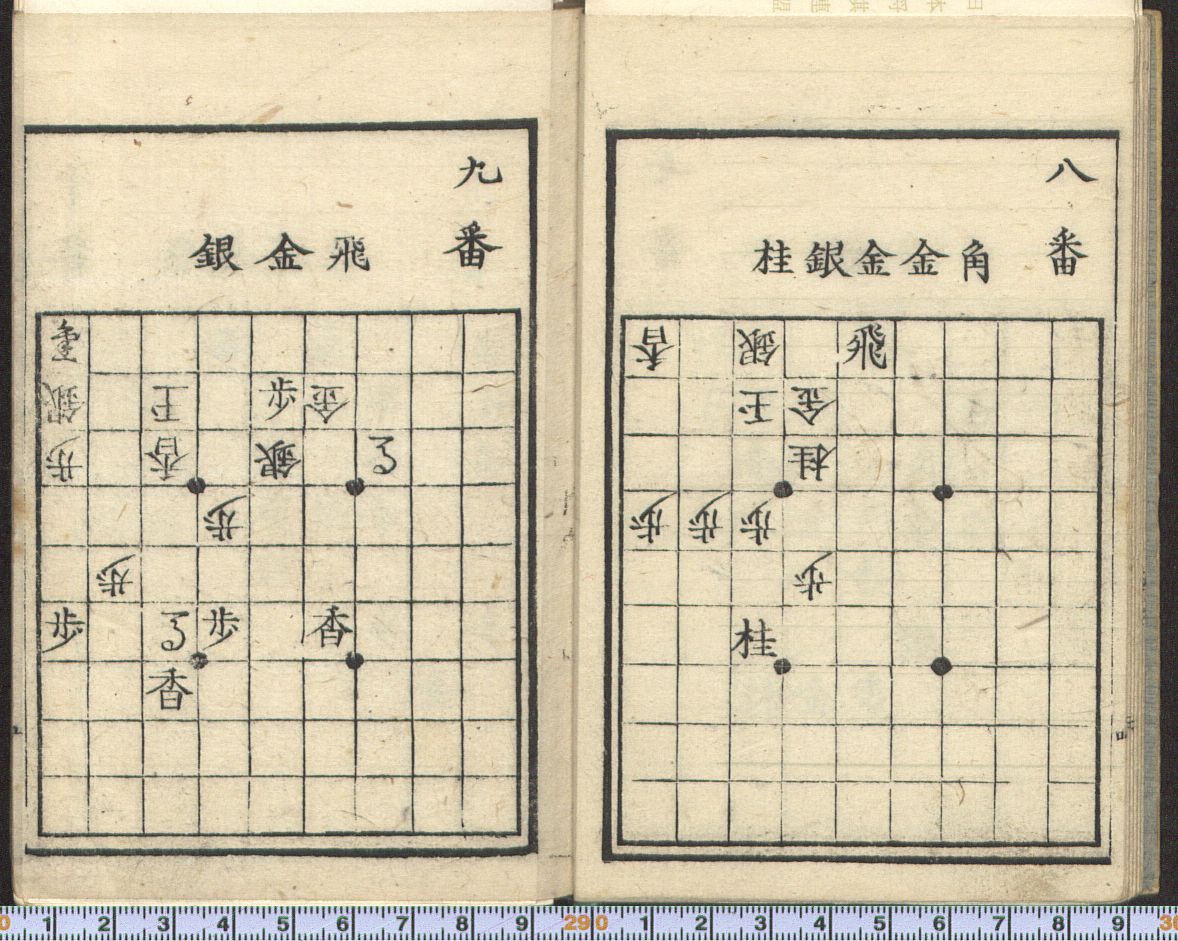 八番
角金金銀桂
飛 銀 香
金 玉
桂
歩 歩 歩
歩
桂
九番
飛金銀
金 歩 王 銀
銀 香 歩
歩
歩
香 歩 歩
香
0 1 2 3 4 5 6 7 8 9 29 0 1 2 3 4 5 6 7 8 9 30